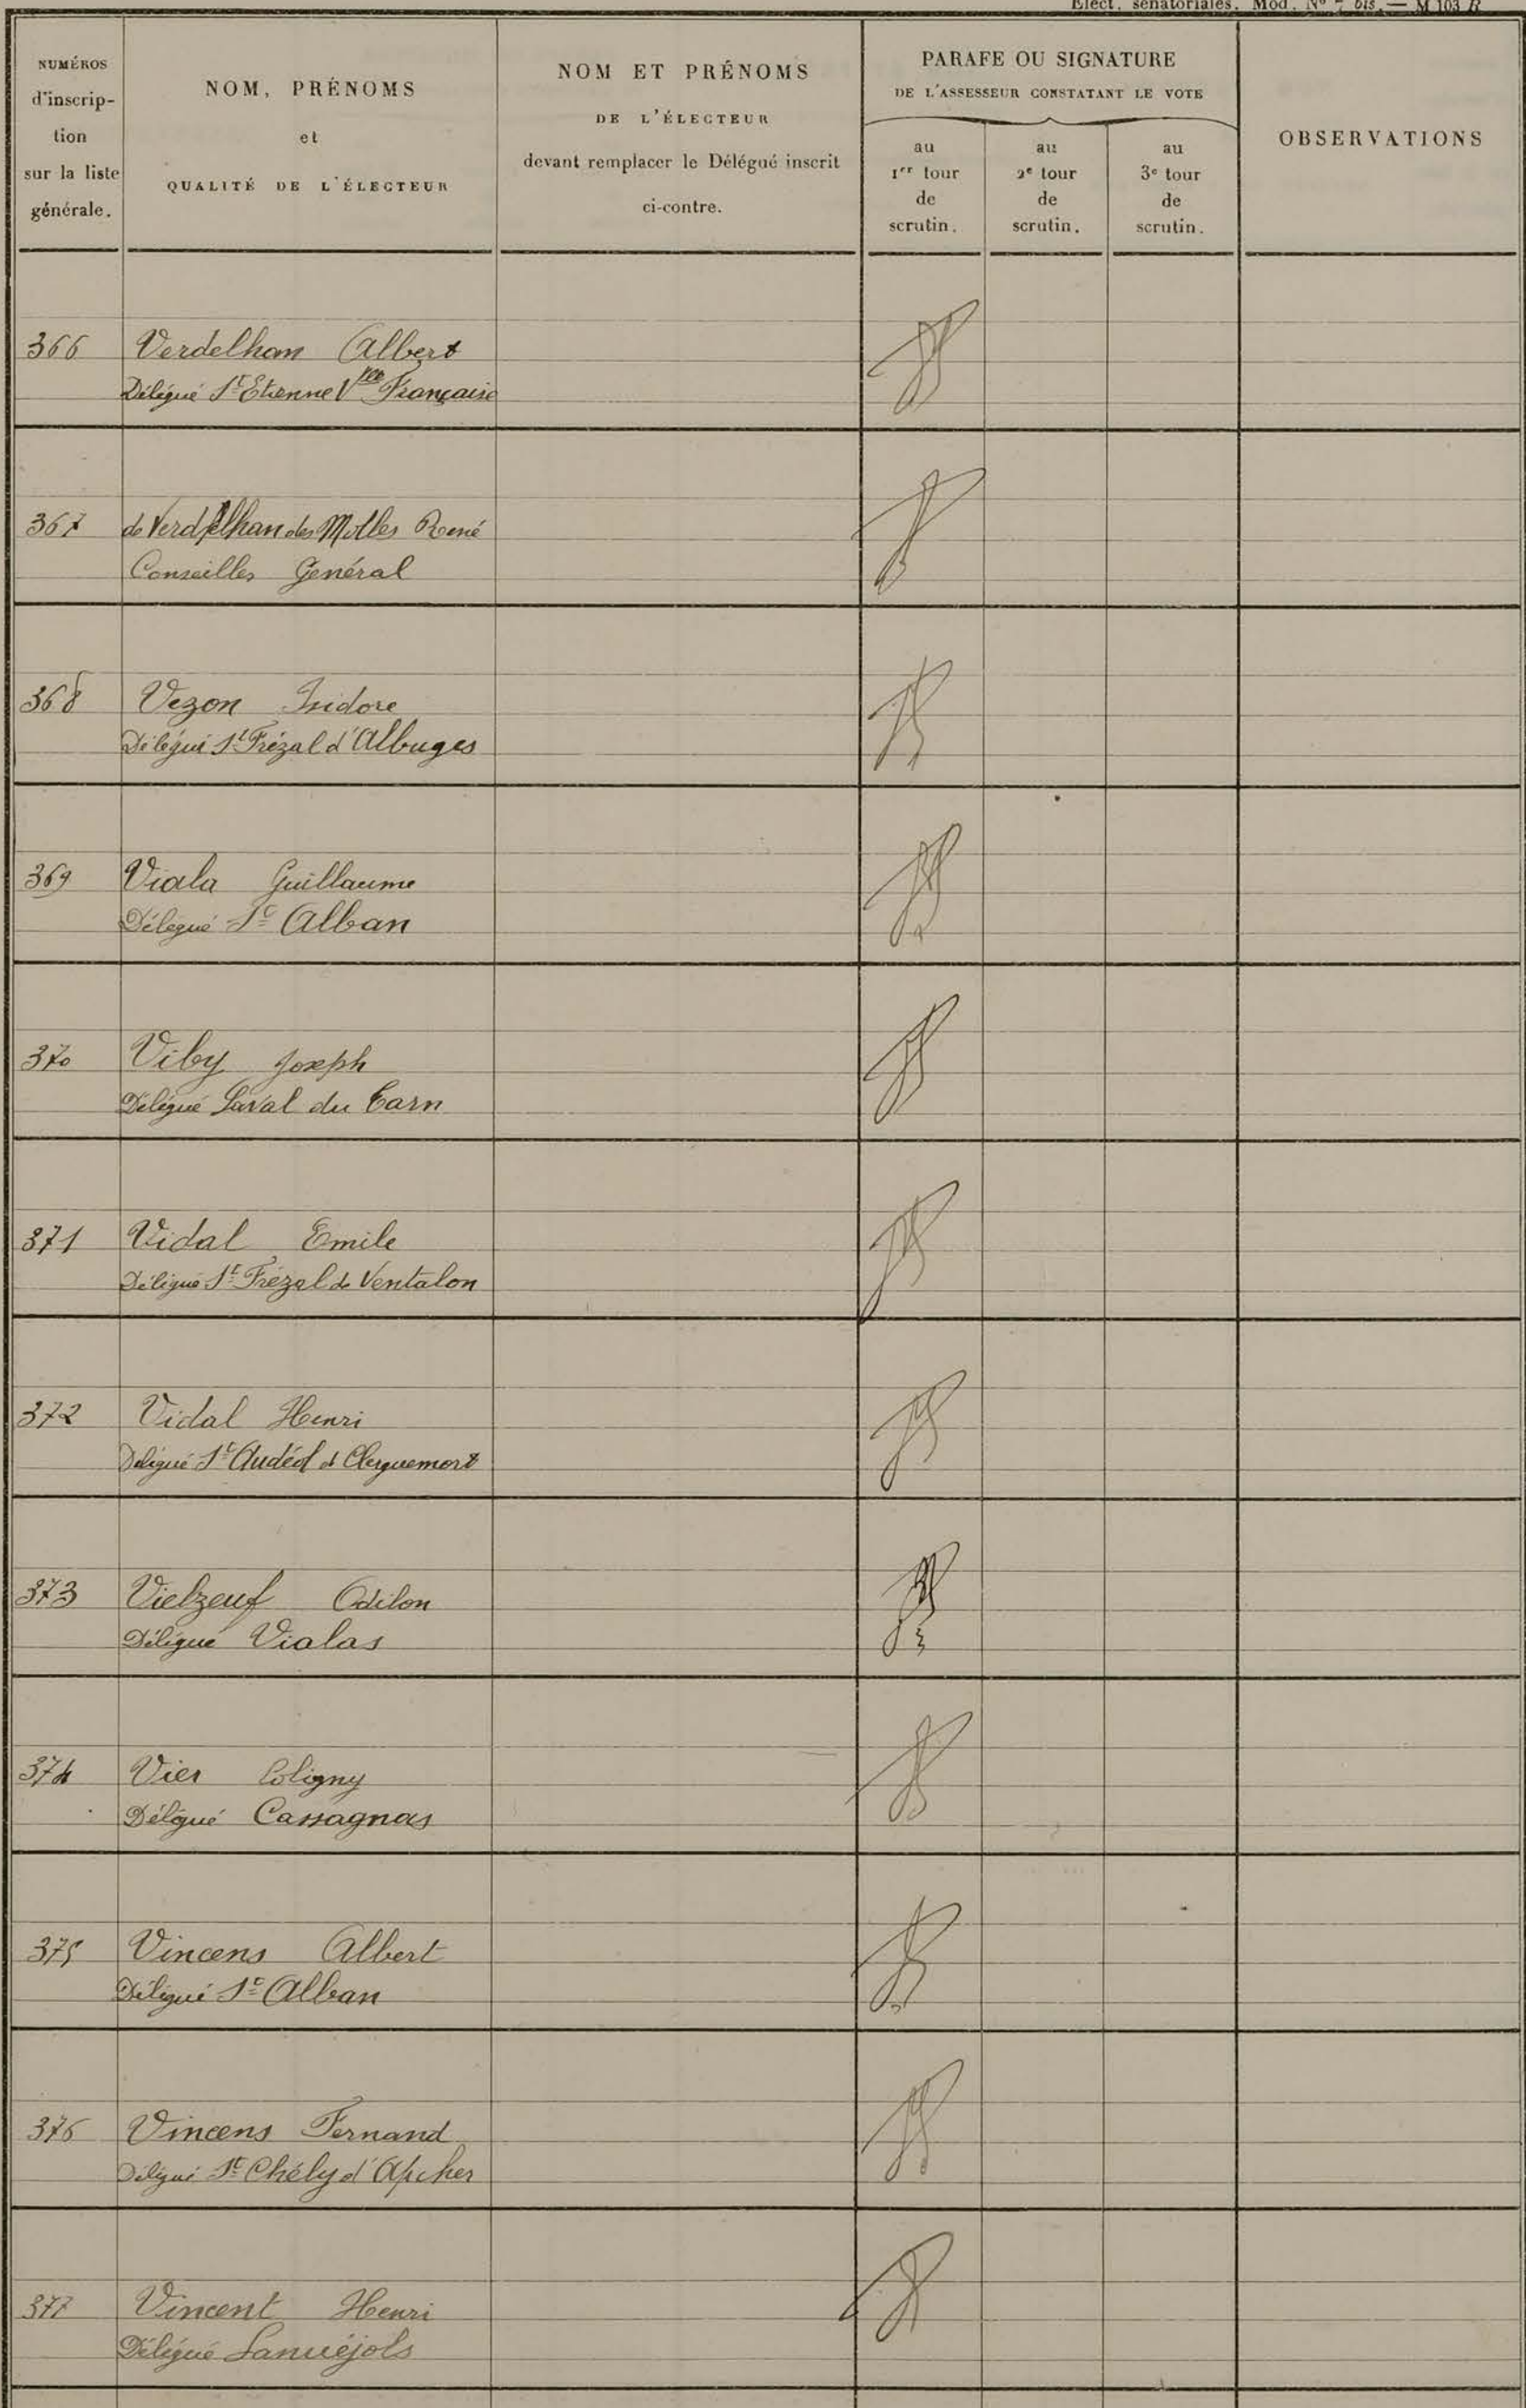 Élect. sénatoriales. Mod. N° 7 bis. — M 103 R
NUMÉROS
d'inscrip-
tion
sur la liste
générale.
NOM, PRÉNOMS
et
QUALITÉ DE L'ÉLECTEUR
NOM ET PRÉNOMS
DE L'ÉLECTEUR
devant remplacer le Délégué inscrit
ci-contre.
PARAFE OU SIGNATURE
DE L'ASSESSEUR CONSTATANT LE VOTE
au
1er tour
de
scrutin.
au
2e tour
de
scrutin.
au
3e tour
de
scrutin.
OBSERVATIONS
366 Verdelhan Albert
Délégué St Etienne Vlee Française
367 de Verdelhan des Molles René
Conseiller Général
368 Vezon Isidore
Délégué St Frézal d'Albuges
369 Viala Guillaume
Délégué St Alban
370 Viby Joseph
Délégué Laval du Tarn
371 Vidal Emile
Délégué St Frézal de Ventalon
372 Vidal Henri
Délégué St Audéol de Clerguemort
373 Vielzeuf Odilon
Délégué Vialas
374 Vier Coligny
Délégué Cassagnas
375 Vincens Albert
Délégué St Alban
376 Vincens Fernand
Délégué St Chély d'Apcher
377 Vincent Henri
Délégué Lanuéjols